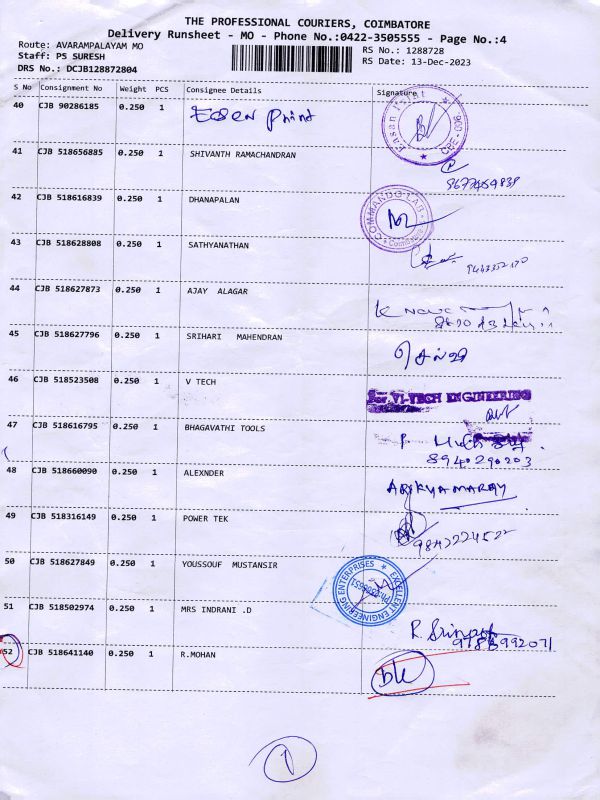 THE PROFESSIONAL COURIERS, COIMBATORE
Delivery Runsheet - MO - Phone No.:0422-3505555 - Page No.:4
Route: AVARAMPALAYAM MO
Staff: P5 SURESH
DRS No.: DCJB128872804
RS No.: 1288728
RS Date: 13-Dec-2023
S No Consignment No Weight PCS Consignee Details Signature
40 CJB 90286185 0.250 1 Eben Print
41 CJB 518656885 0.250 1 SHIVANTH RAMACHANDRAN
42 CJB 518616839 0.250 1 DHANAPALAN COMMANDO LAB
43 CJB 518628808 0.250 1 SATHYANATHAN
44 CJB 518627873 0.250 1 AJAY ALAGAR
45 CJB 518627796 0.250 1 SRIHARI MAHENDRAN
46 CJB 518523508 0.250 1 V TECH For VI-TECH ENGINEERING
47 CJB 518616795 0.250 1 BHAGAVATHI TOOLS
8940290203
48 CJB 518660090 0.250 1 ALEXNDER
49 CJB 518316149 0.250 1 POWER TEK
50 CJB 518627849 0.250 1 YOUSSOUF MUSTANSIR EXCELLENT ENGINEERING ENTERPRISES
51 CJB 518502974 0.250 1 MRS INDRANI .D
52 CJB 518641140 0.250 1 R.MOHAN
1